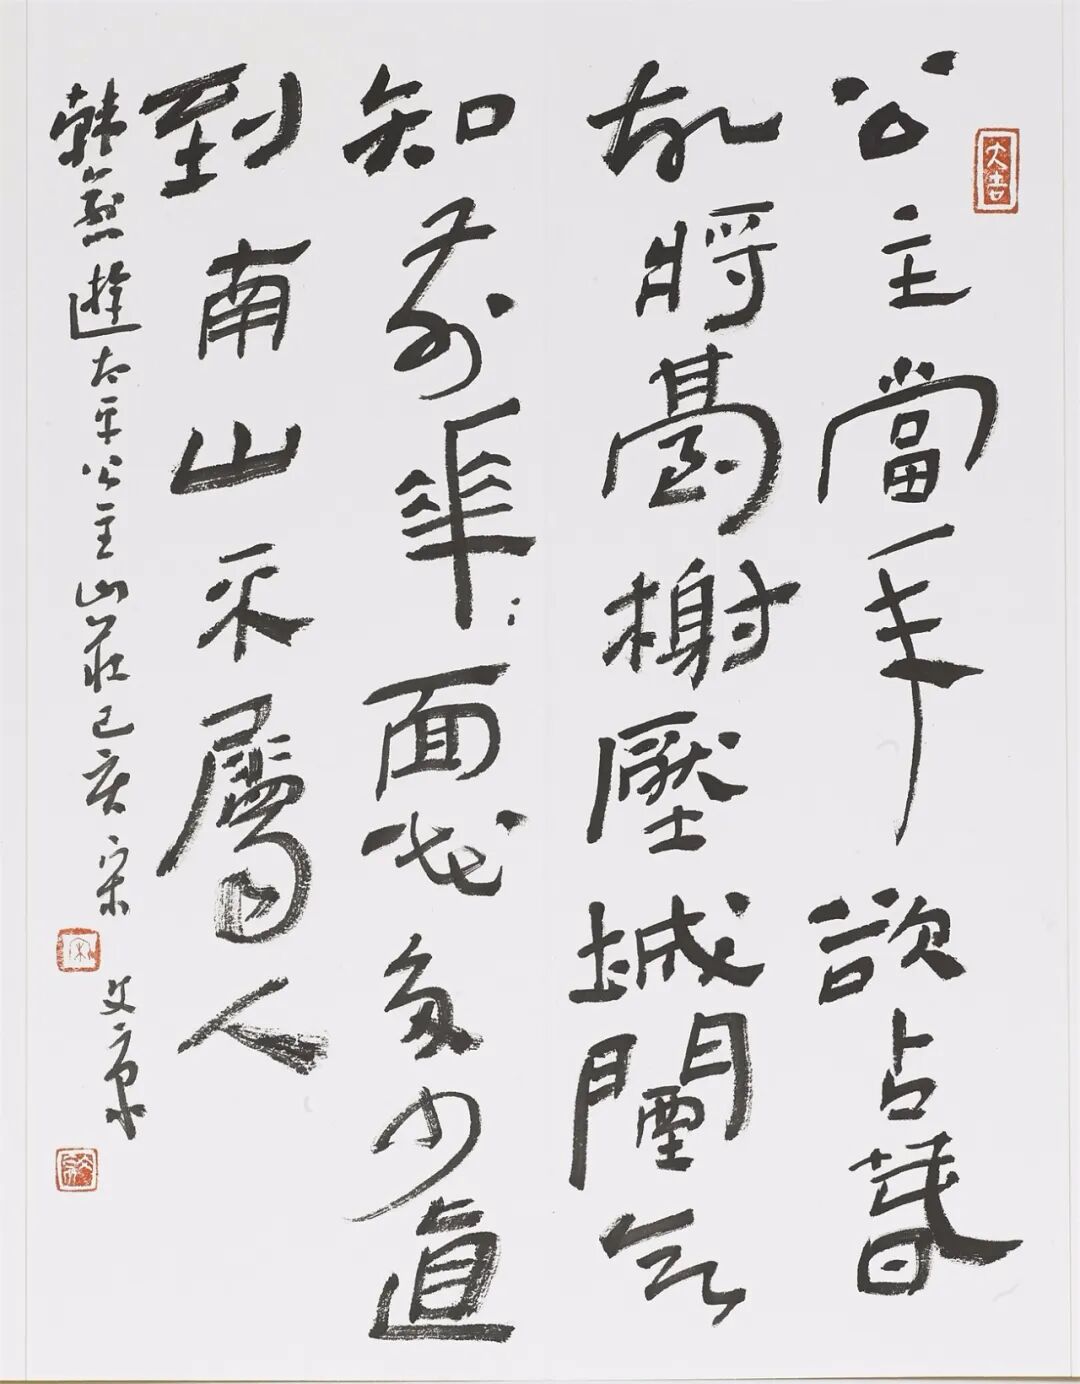 大吉
公主當年欲占春
故將臺榭壓城闉欲
知前華面花多少直
到南山不屬人
韓愈遊太平公主山莊己亥宋文康
宋